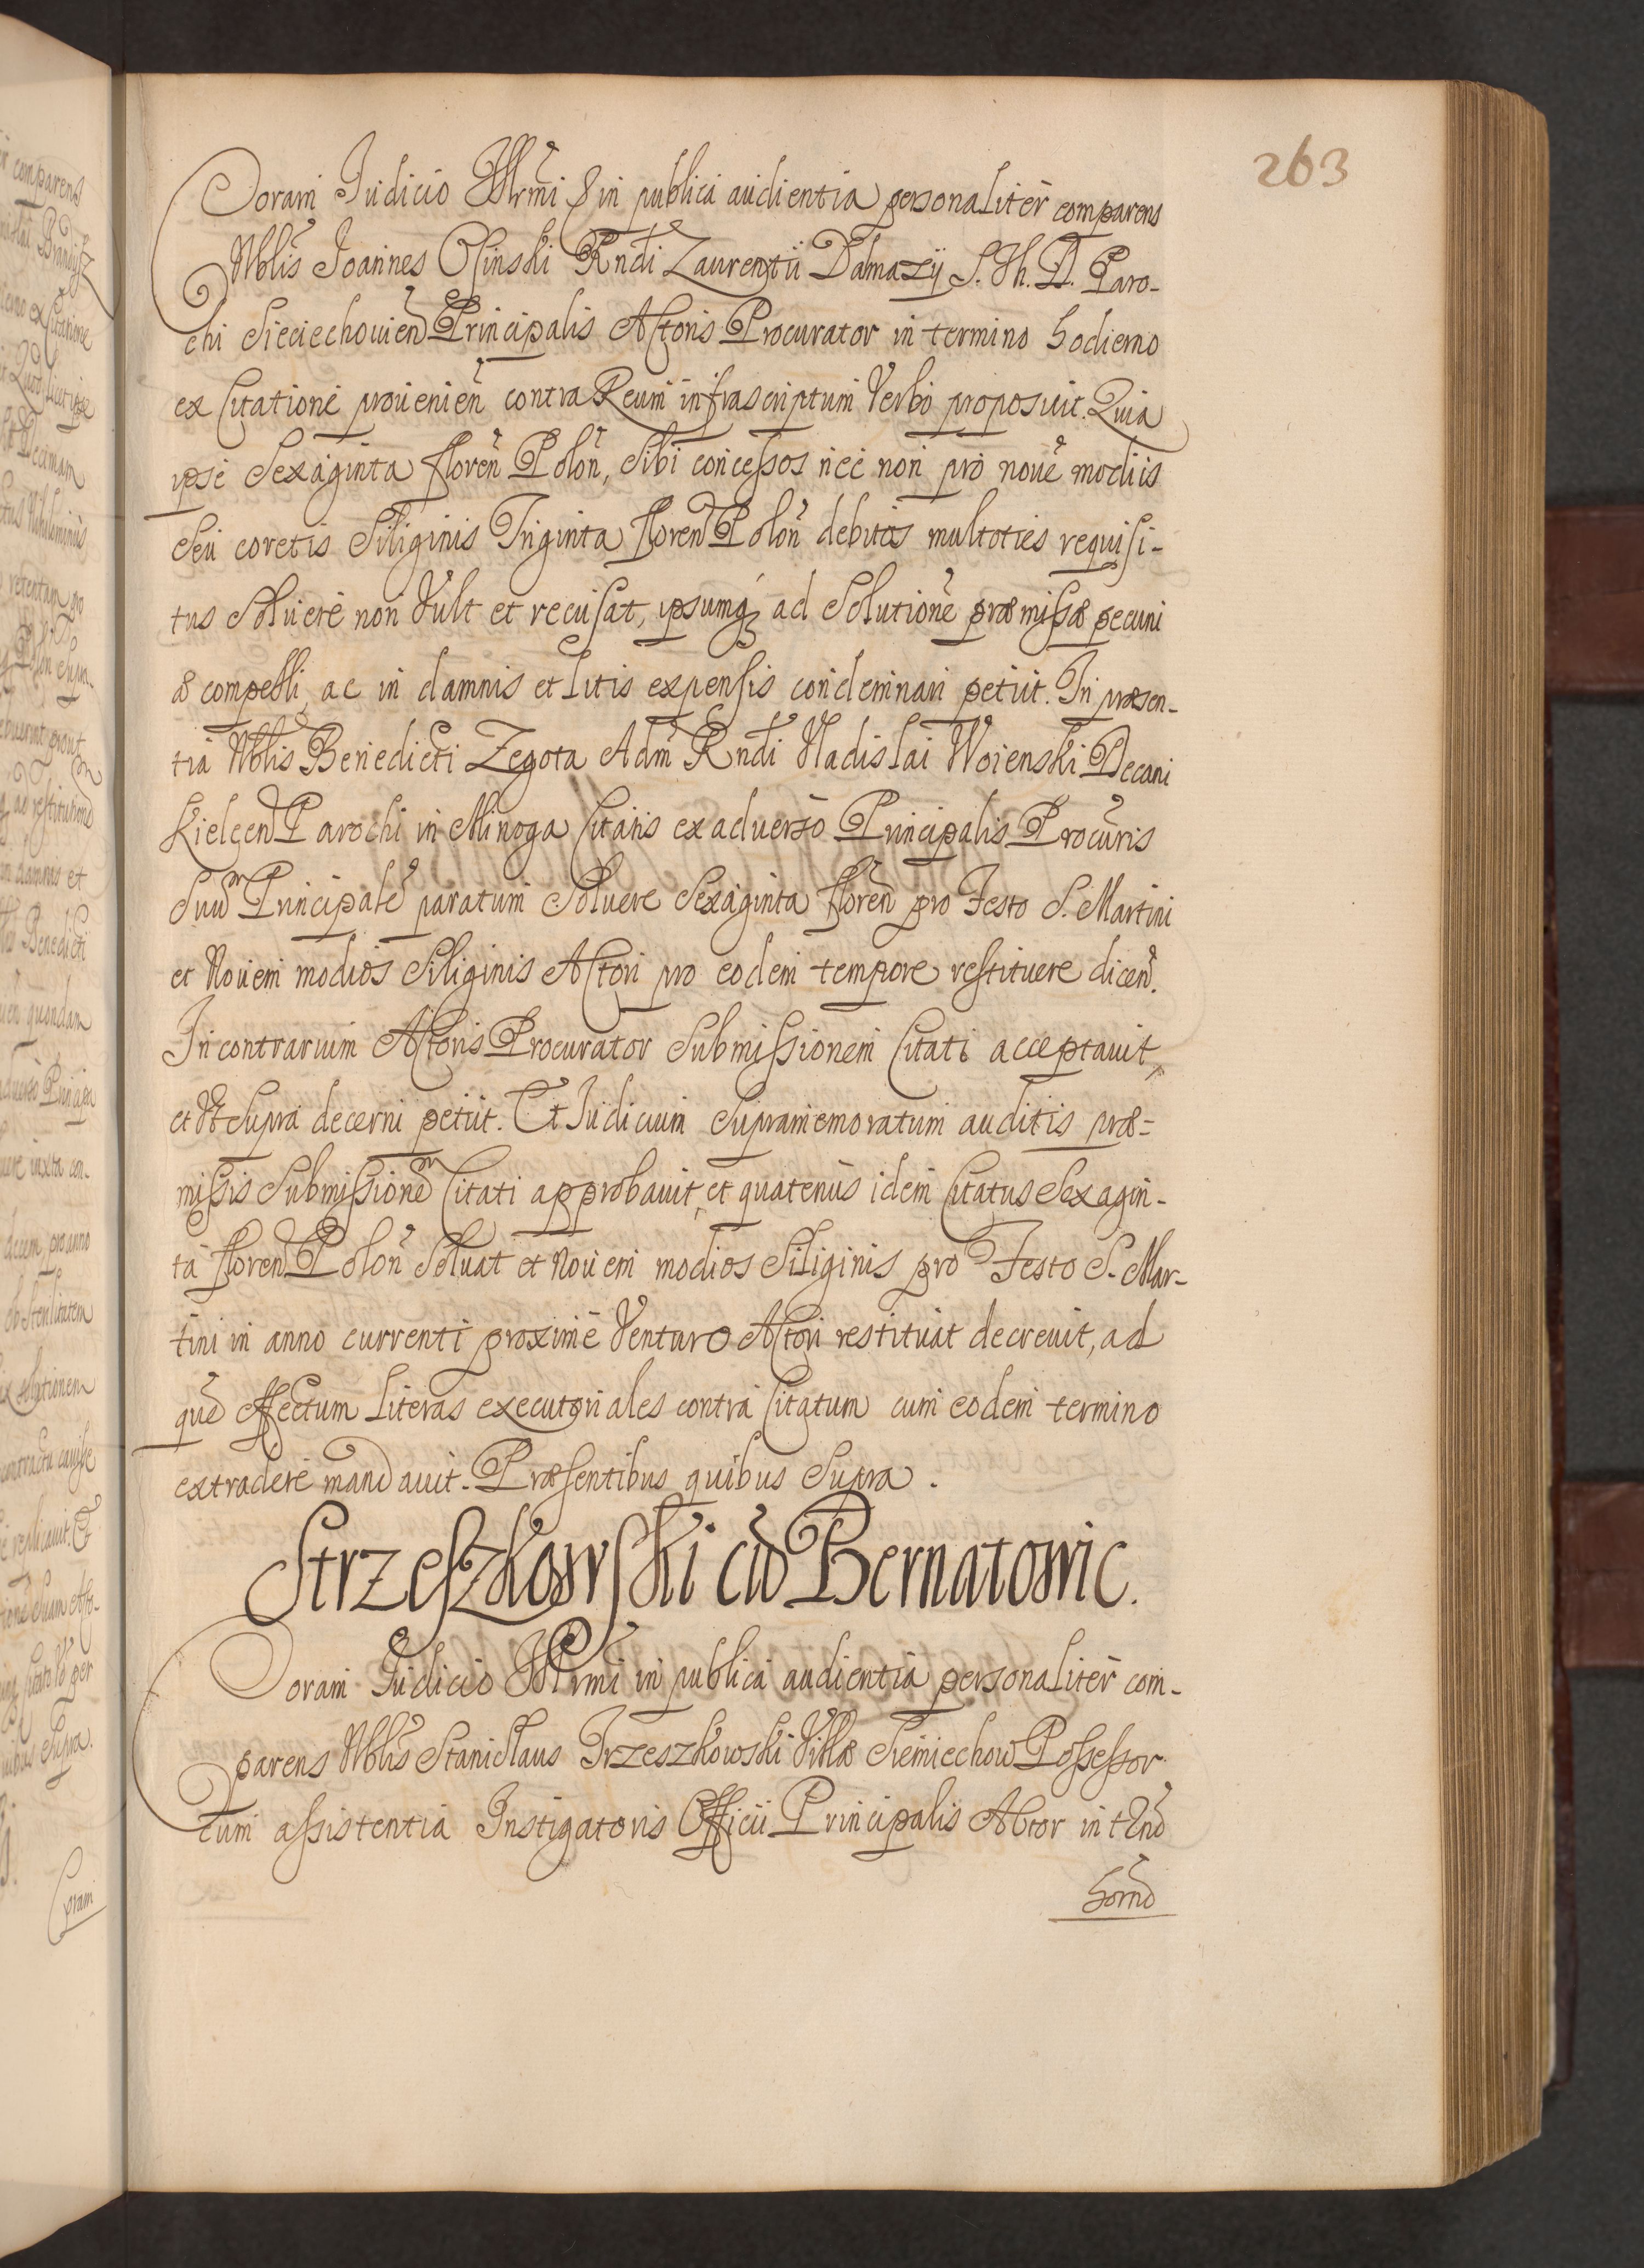 263
Coram Iudicio Illrmi & in publica audientia personaliter comparens
Nblis Joannes Osinski Rndi Laurentii Dalmazÿ S. Th. D. Paro-
chi Sieciechouien Principalis Actoris Procurator in termino hodierno
ex Citatione prouenien contra Reum infrascriptum Verbo proposuit. Quia
ipse Sexaginta floren Polon, Sibi concessos nec non pro noue modiis
Seu coretis Siliginis Triginta floren Polon debitos multoties requisi-
tus Soluere non Vult et recusat, ipsumq ad Solutione præmissæ pecuni
æ compelli, ac in damnis et Litis expensis condemnari petiit. In præsen-
tia Nblis Benedicti Zegota Adm Rndi Vladislai Woienski Decani
Kielcen Parochi in Minoga Citatis ex aduerso Principalis Procuris
Suu Principale paratum Soluere Sexaginta floren pro Festo S. Martini
et Nouem modios Siliginis Actori pro eodem tempore restituere dicen.
In contrarium Actoris Procurator Submissionem Citati acceptauit,
et Vt Supra decerni petiit. Et Iudicium Supramemoratum auditis præ-
missis Submissione Citati approbauit, et quatenus idem Citatus Sexagin-
ta floren Polon Soluat et Nouem modios Siliginis pro Festo S. Mar-
tini in anno currenti proxime Venturo Actori restituat decreuit, ad
que effectum Literas executoriales contra Citatum cum eodem termino
extradere mandauit. Præsentibus quibus Supra.
Strzeszkowski cu Bernatowic.
Coram Iudicio Illrmi in publica audientia personaliter com-
parens Nblis Stanislaus Trzeszkowski Villæ Siemiechow Possessor
cum assistentia Instigatoris Officii Principalis Actor in tnno
horno